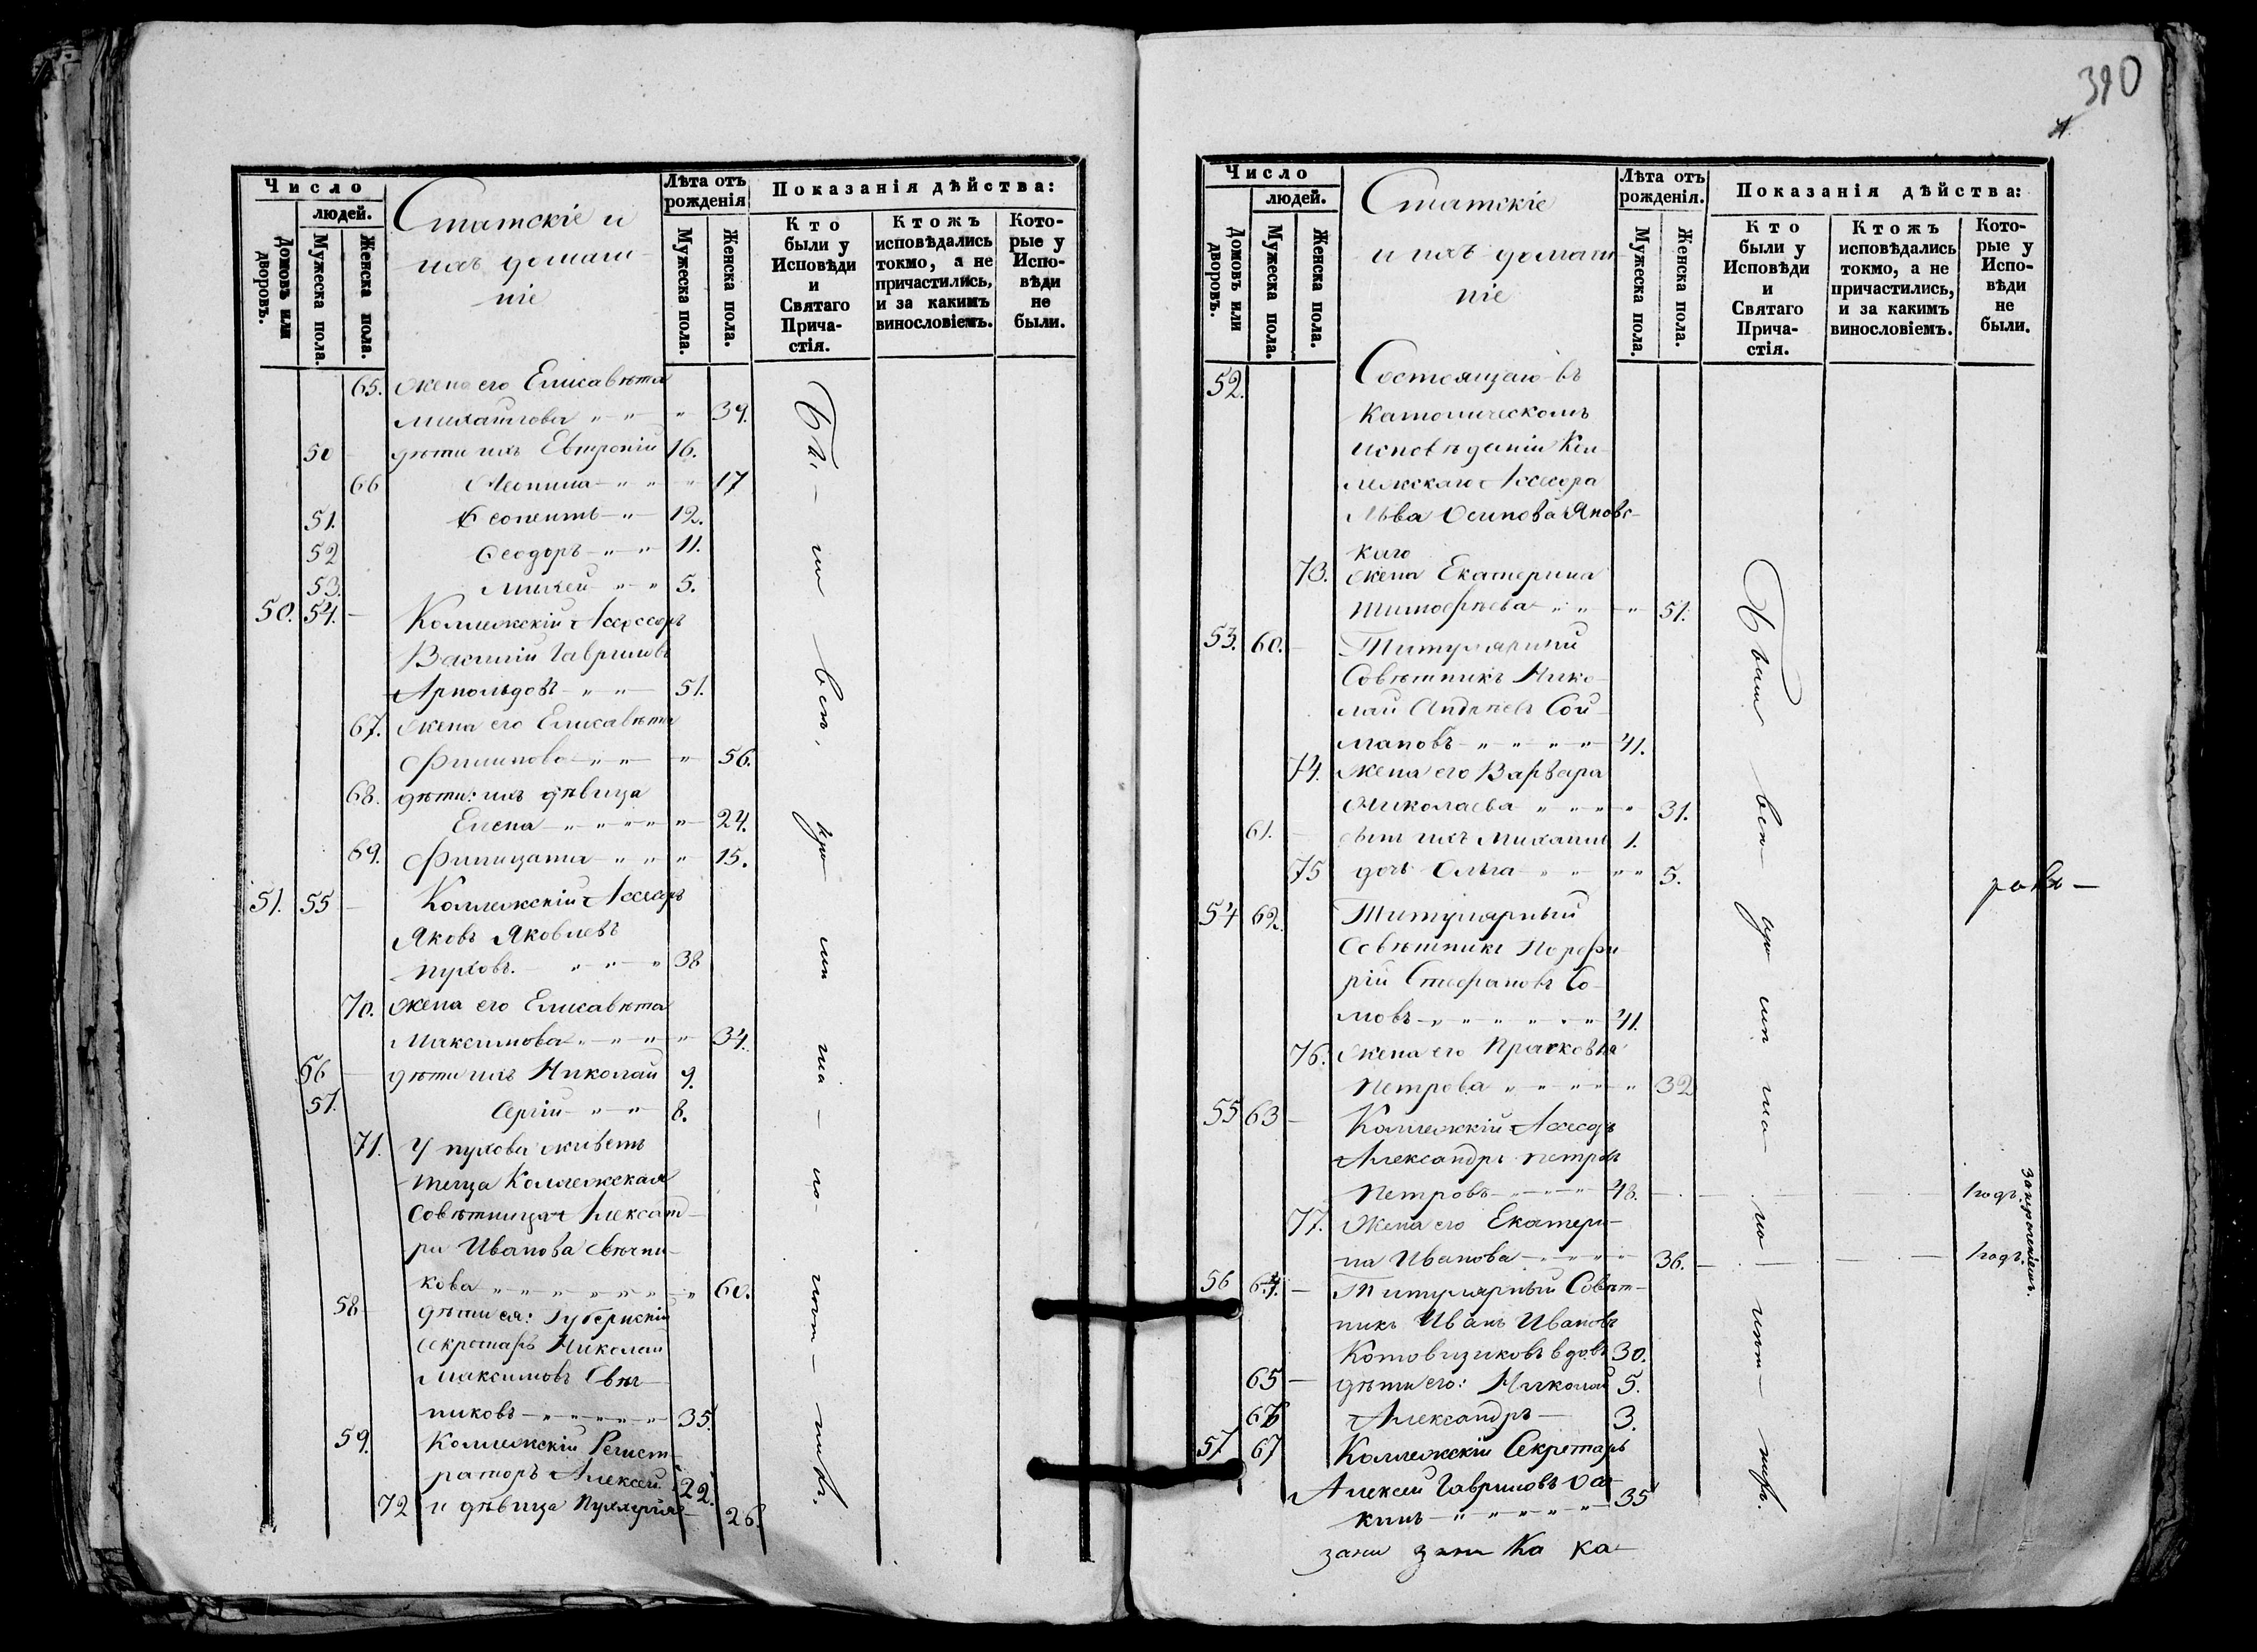 Число
людей.
Домовъ или дворовъ.
Мужеска пола.
Женска пола.
Статскіе и
ихъ домаш-
ніе
Лѣта отъ рожденія
Мужеска пола.
Женска пола.
Показанія дѣйства:
Кто были у Исповѣди и Святаго Прича-стія.
Ктожъ исповѣдались токмо, а не причастились, и за какимъ винословіемъ.
Кото-рые у Испо-вѣди не были.
65. жена его Елисавѣта
Михайлова " " " 39.
50 дѣти ихъ Евтропій 16.
66 Леонила " " " 17
51. Ѳеопентъ " 12.
52 Ѳеодоръ " " 11.
53. Михей " " 5.
50. 54. Коллежскій Ассессоръ
Василій Гавриловъ
Арнольдовъ " " 51.
67. жена его Елисавѣта
Филипова " " " 56.
68. дѣти: ихъ дѣвица
Елена " " " " " 24.
69. Филицата " " " 15.
51. 55 Коллежскій Ассесоръ
Яковъ Яковлевъ
Пуховъ. " " " 38
70. жена его Елисавѣта
Максимова " " " " 34.
56 дѣти ихъ Николай 9.
57. Сергій " " 8.
71. У Пухова живетъ
теща Коллежская
Совѣтница Александ-
ра Иванова Свѣчни-
кова " " " " " " " 60.
58 дѣти ея: Губернскій
Секретарь Николай
Максимовъ Свѣч-
никовъ " " " " " 35.
59. Коллежскій Регист-
раторъ Алексѣй 22.
72 и дѣвица Пулхерія 26.
Бы - ли вси, у испо -
390
Число
людей.
Домовъ или дворовъ.
Мужеска пола.
Женска пола.
Статскіе
и ихъ домаш
ніе
Лѣта отъ рожденія.
Мужеска пола.
Женска пола.
Показанія дѣйства:
Кто были у Исповѣди и Святаго Прича-стія.
Ктожъ исповѣдались токмо, а не причастились, и за какимъ винословіемъ.
Кото-рые у Испо-вѣди не были.
52. Состоящаго въ
Католическомъ
исповѣданіи Кол-
лежскаго Ассесора
Льва Осипова Яновс-
каго
73. жена Екатерина
Тимоѳѣева " " " 51.
53. 60. Титулярный
Совѣтникъ Нико-
лай Андреевъ Сой-
мановъ " " " " 41.
74. жена его Варвара
Николаева " " " " 31.
61. сынъ ихъ Михаилъ 1.
75 дочь Ольга " " " " 5.
54 62. Титулярный
Совѣтникъ Порфи-
рій Стефановъ Со-
мовъ " " " " " " 41.
76. жена его Прасковья
Петрова " " " " " 32
55 63 Коллежскій Ассесоръ
Александръ Петровъ
Петровъ " " " 48. 1 годъ.
77. жена его Екатери-
на Иванова " " " " 36. 1 годъ.
56 64. Титулярный Совѣт-
никъ Иванъ Ивановъ
Котовщиковъ вдовъ 30.
65 дѣти его: Николай 5.
66 Александръ 3.
57 67 Коллежскій Секретарь
Алексѣй Гавриловъ Оса-
кинъ " " " " " " 35